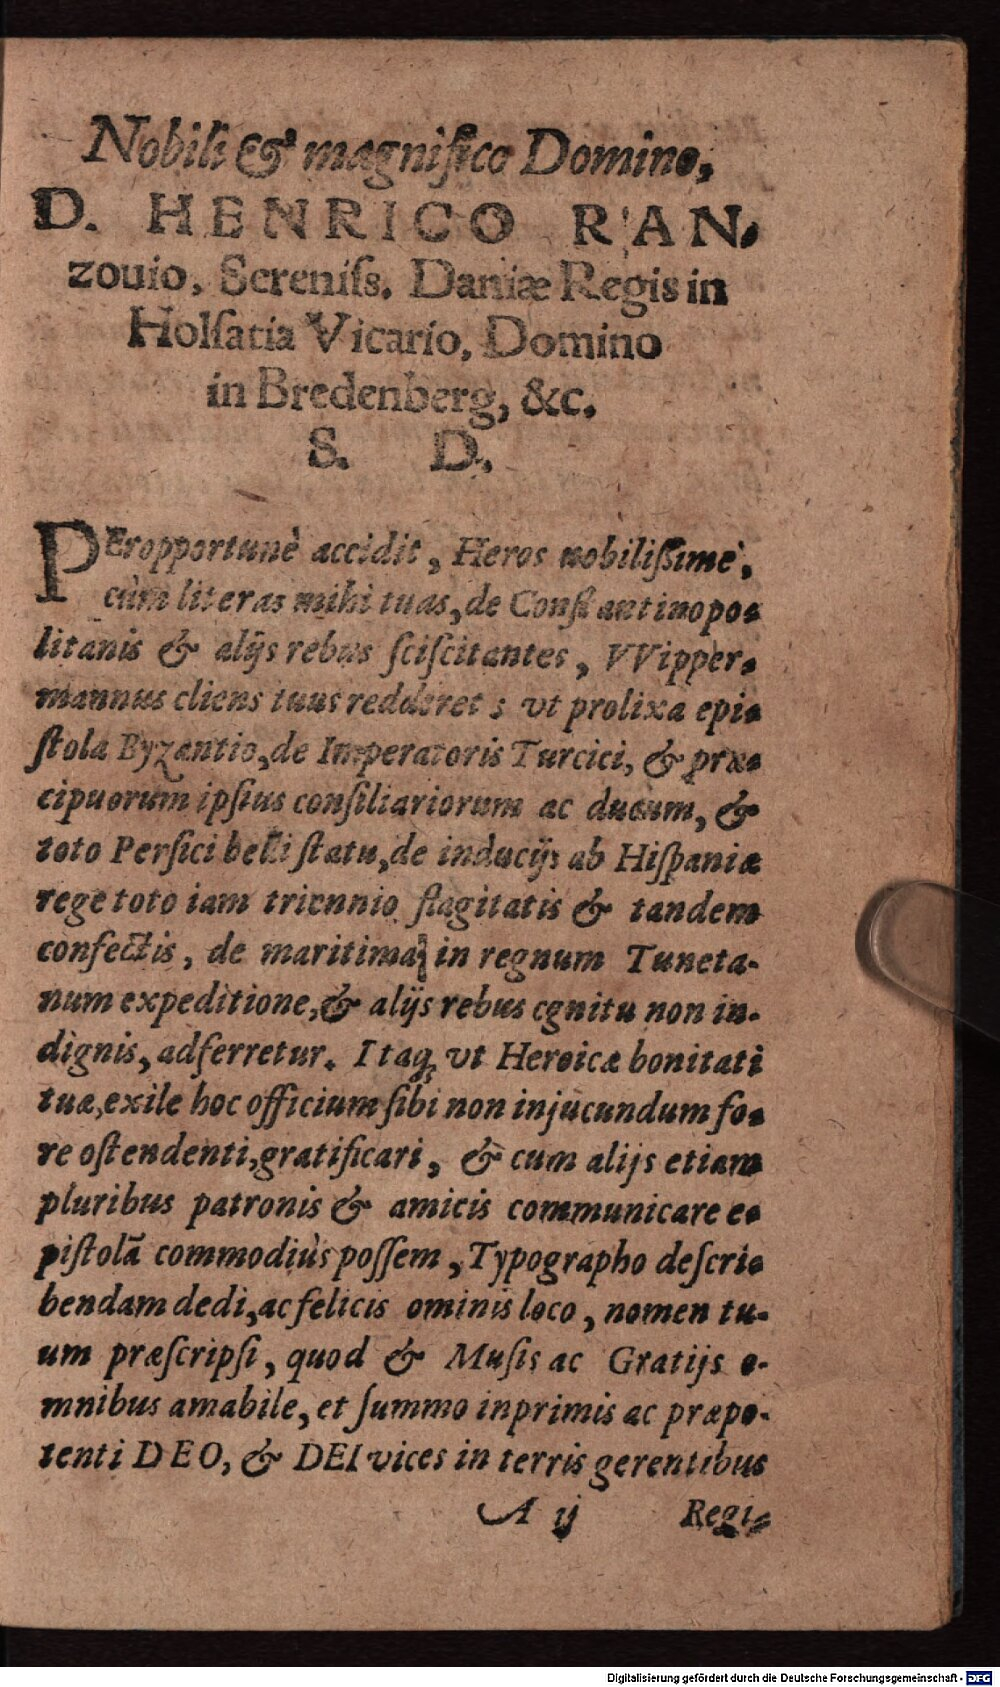 Nobili & magnifico Domino,
D. HENRICO RAN-
zouio, Sereniſs. Daniæ Regis in
Holſatia Vicario, Domino
in Bredenberg, &c.
S. D.
PEropportunè accidit, Heros nobiliſſime,
cùm literas mihi tuas, de Conſtantinopo-
litanis & alijs rebus ſciſcitantes, VVipper-
mannus cliens tuus redderet; vt prolixa epi-
ſtola Byzantio, de Imperatoris Turcici, & præ-
cipuorum ipſius conſiliariorum ac ducum, &
toto Perſici belli ſtatu, de inducijs ab Hiſpaniæ
rege toto iam triennio flagitatis & tandem
confectis, de maritima in regnum Tuneta-
num expeditione, & alijs rebus cgnitu non in-
dignis, adferretur. Itaq; vt Heroicæ bonitati
tuæ, exile hoc officium ſibi non injucundum fo-
re oſtendenti, gratificari, & cum alijs etiam
pluribus patronis & amicis communicare e-
piſtolā commodiùs poſſem, Typographo deſcri-
bendam dedi, ac felicis ominis loco, nomen tu-
um præſcripſi, quod & Muſis ac Gratijs o-
mnibus amabile, et ſummo inprimis ac præpo-
tenti DEO, & DEI vices in terris gerentibus
A ij Regi-
Digitalisierung gefördert durch die Deutsche Forschungsgemeinschaft - DFG